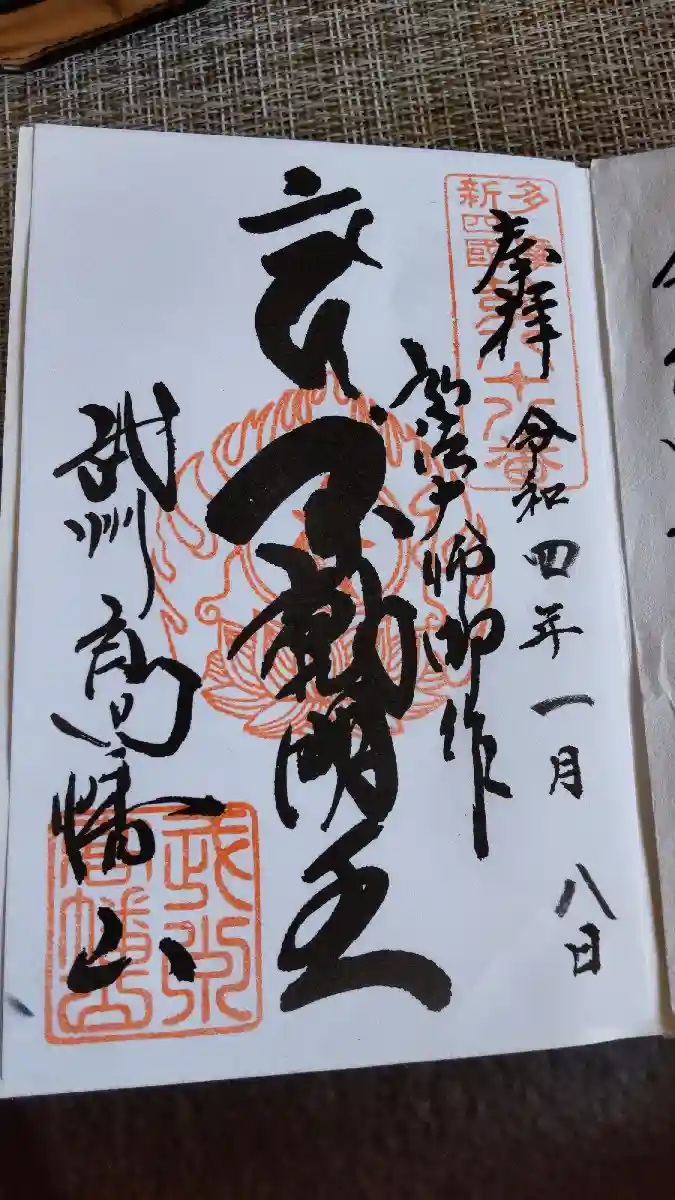 多摩
新四國
第八十八番
奉拝
令和四年一月八日
弘法大師御作
不動明王
武州高幡山
武州
高幡山